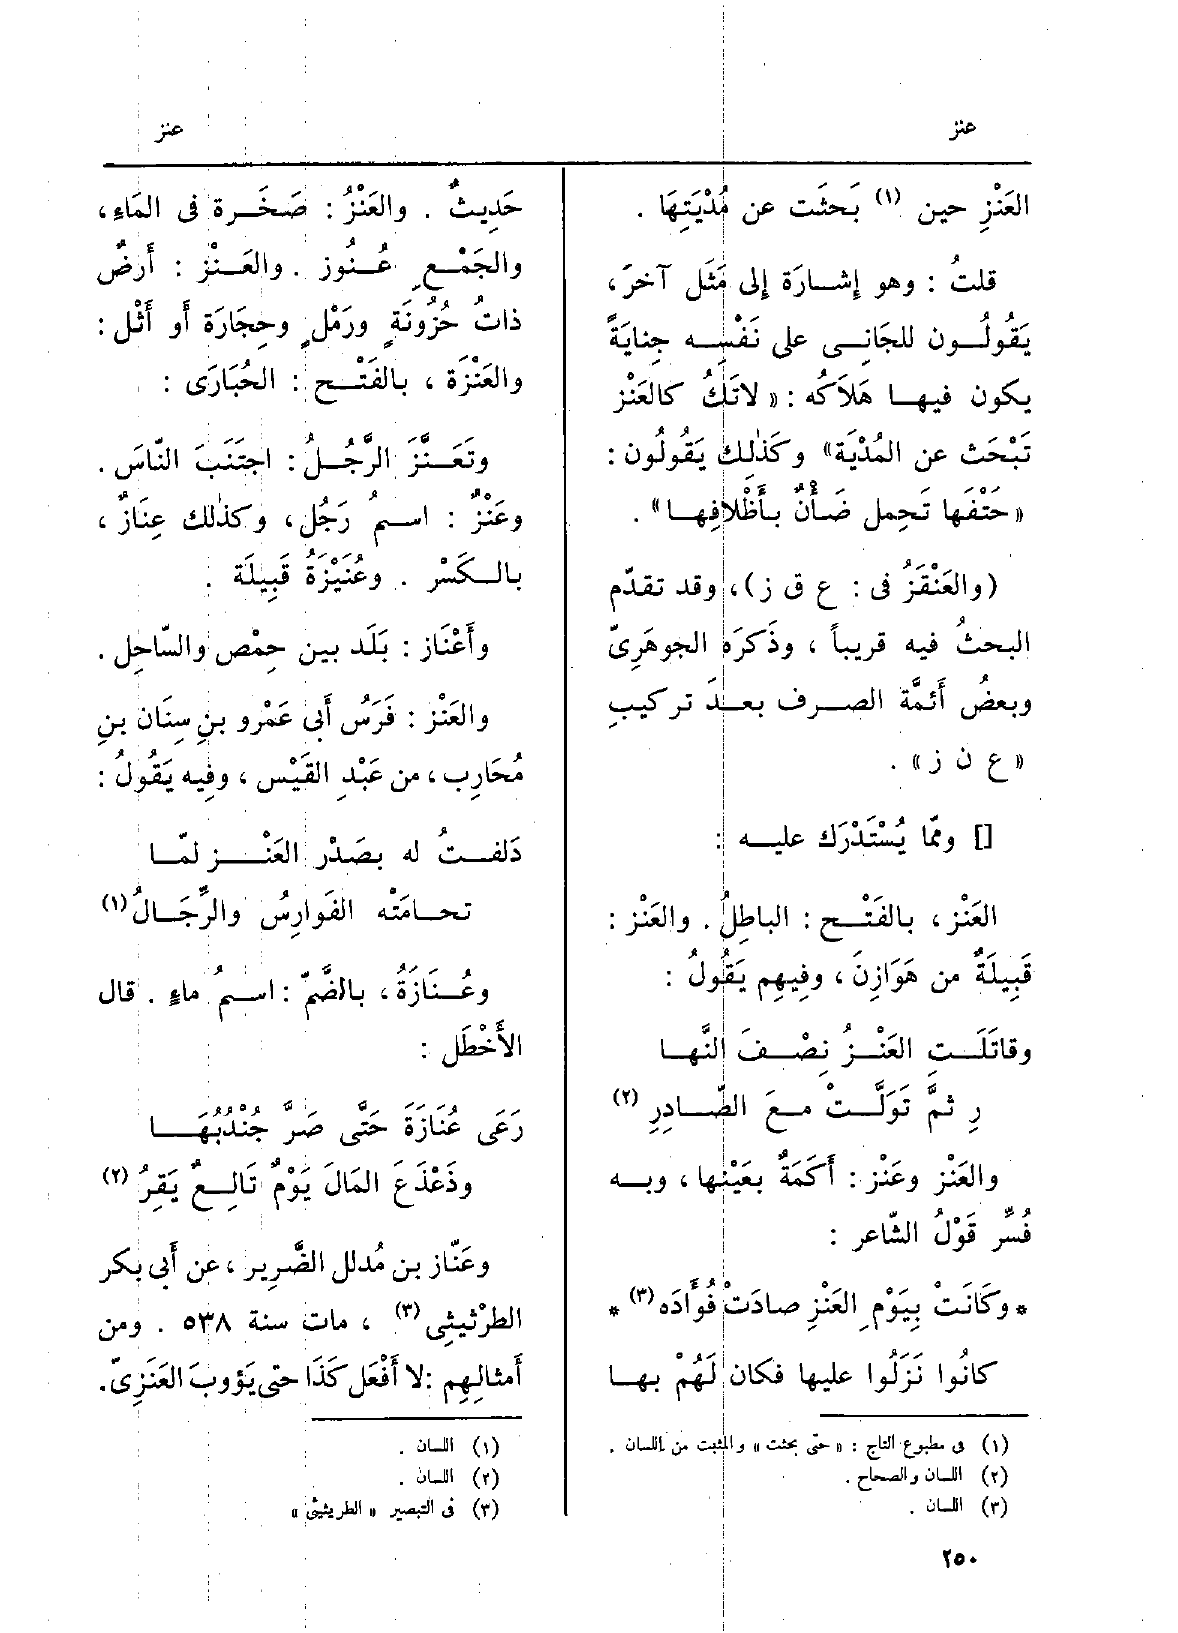 عنز
عنز
العَنْزِ حين (١) بَحثَت عن مُدْيَتِهَا .
قلتُ : وهو إشارَة إلى مَثَل آخرَ،
يَقُولُون للجَانِى على نَفْسِه جِنايَةً
يكون فيها هَلاَكُه : « لاتَكُ كالعَنْز
تَبْحَث عن المُدْيَة» وكَذٰلِك يَقُولُون :
« حَتْفَها تَحمِل ضَأْنٌ بأَظْلافِها» .
(والعَنْقَزُ فى : ع ق ز)، وقد تقدّم
البحثُ فيه قريباً ، وذَكَرَه الجوهَرِىّ
وبعضُ أَئمَّة الصرف بعدَ تركيبِ
« ع ن ز» .
[] وممّا يُسْتَدْرَك عليه :
العَنْز ، بالفَتْح : الباطِلُ . والعَنْز :
قَبِيلَةٌ من هَوَازِنَ ، وفِيهِم يَقُولُ :
وقاتَلَتِ العَنْزُ نِصْفَ النَّها
رِ ثمَّ تَوَلَّتْ معَ الصّادِرِ (٢)
والعَنْز وعَنْز : أَكَمَةٌ بعَيْنِها ، وبه
فُسِّر قَوْلُ الشّاعر :
* وكَانَتْ بِيَوْمِ العَنْزِ صادَتْ فُؤَادَه (٣) *
كانُوا نَزَلُوا عليها فكان لَهُمْ بها
(١) فى مطبوع التاج : « حتى بحثت » والمثبت من اللسان .
(٢) اللسان والصحاح .
(٣) اللسان .
حَدِيثٌ . والعَنْزُ : صَخَرة فى الماءِ ،
والجَمْع عُنُوز . والعَنْز : أَرضٌ
ذاتُ حُزُونَةٍ ورَمْلٍ وحِجَارَة أَو أَثْل :
والعَنْزَة ، بالفَتْح : الحُبَارَى :
وتَعَنَّزَ الرَّجُلُ : اجتَنَبَ النّاسَ .
وعَنْزٌ : اسمُ رَجُل ، وكذٰلك عِنَازٌ ،
بالكَسْر . وعُنَيْزَةُ قَبِيلَة .
وأَعْنَاز : بَلَد بين حِمْص والسّاحِل .
والعَنْز : فَرَسُ أَبى عَمْرو بنِ سِنَان بنِ
مُحَارِب ، من عَبْدِ القَيْس ، وفِيه يَقُولُ :
دَلفتُ له بصَدْر العَنْز لمّا
تحامَتْه الفَوارِسُ والرِّجَالُ (١)
وعُنَازَةُ ، بالضَّمّ : اسمُ ماءٍ . قال
الأَخْطَل :
رَعَى عُنَازَةَ حَتَّى صَرَّ جُنْدُبُهَا
وذَعْذَعَ المَالَ يَوْمٌ تَالِعٌ يَقِرُ (٢)
وعَنّاز بن مُدلل الضَّرِير ، عن أَبى بكر
الطرْثيثى (٣) ، مات سنة ٥٣٨ . ومن
أَمثالِهِم : لا أَفْعَل كَذَا حتى يَؤُوبَ العَنَزِىّ.
(١) اللسان .
(٢) اللسان .
(٣) فى التبصير « الطريثيثى »
٢٥٠